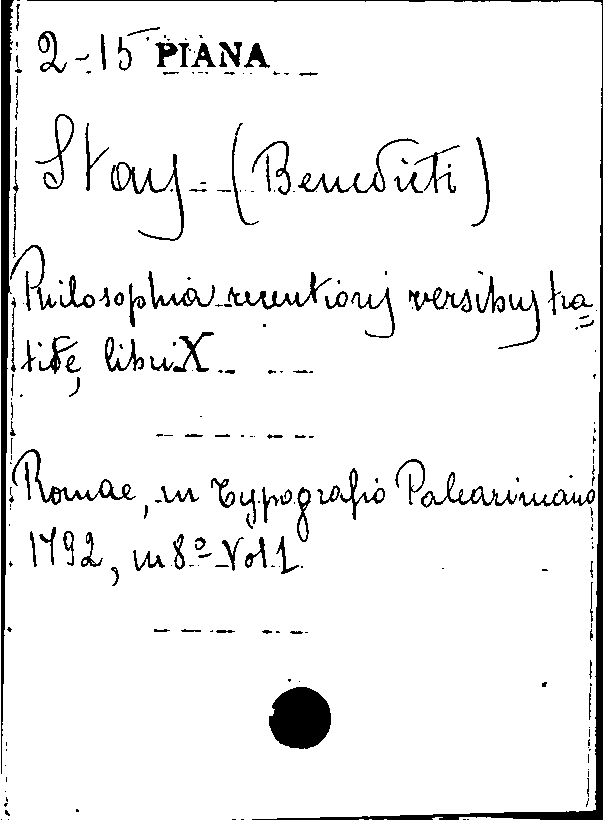 2-15 PIANA
Stay (Benedicti)
Philosophia recentioris versibus tra=
tidę, libri X
Romae, in Typografio Palearimano
1792, in 8º Vol 1